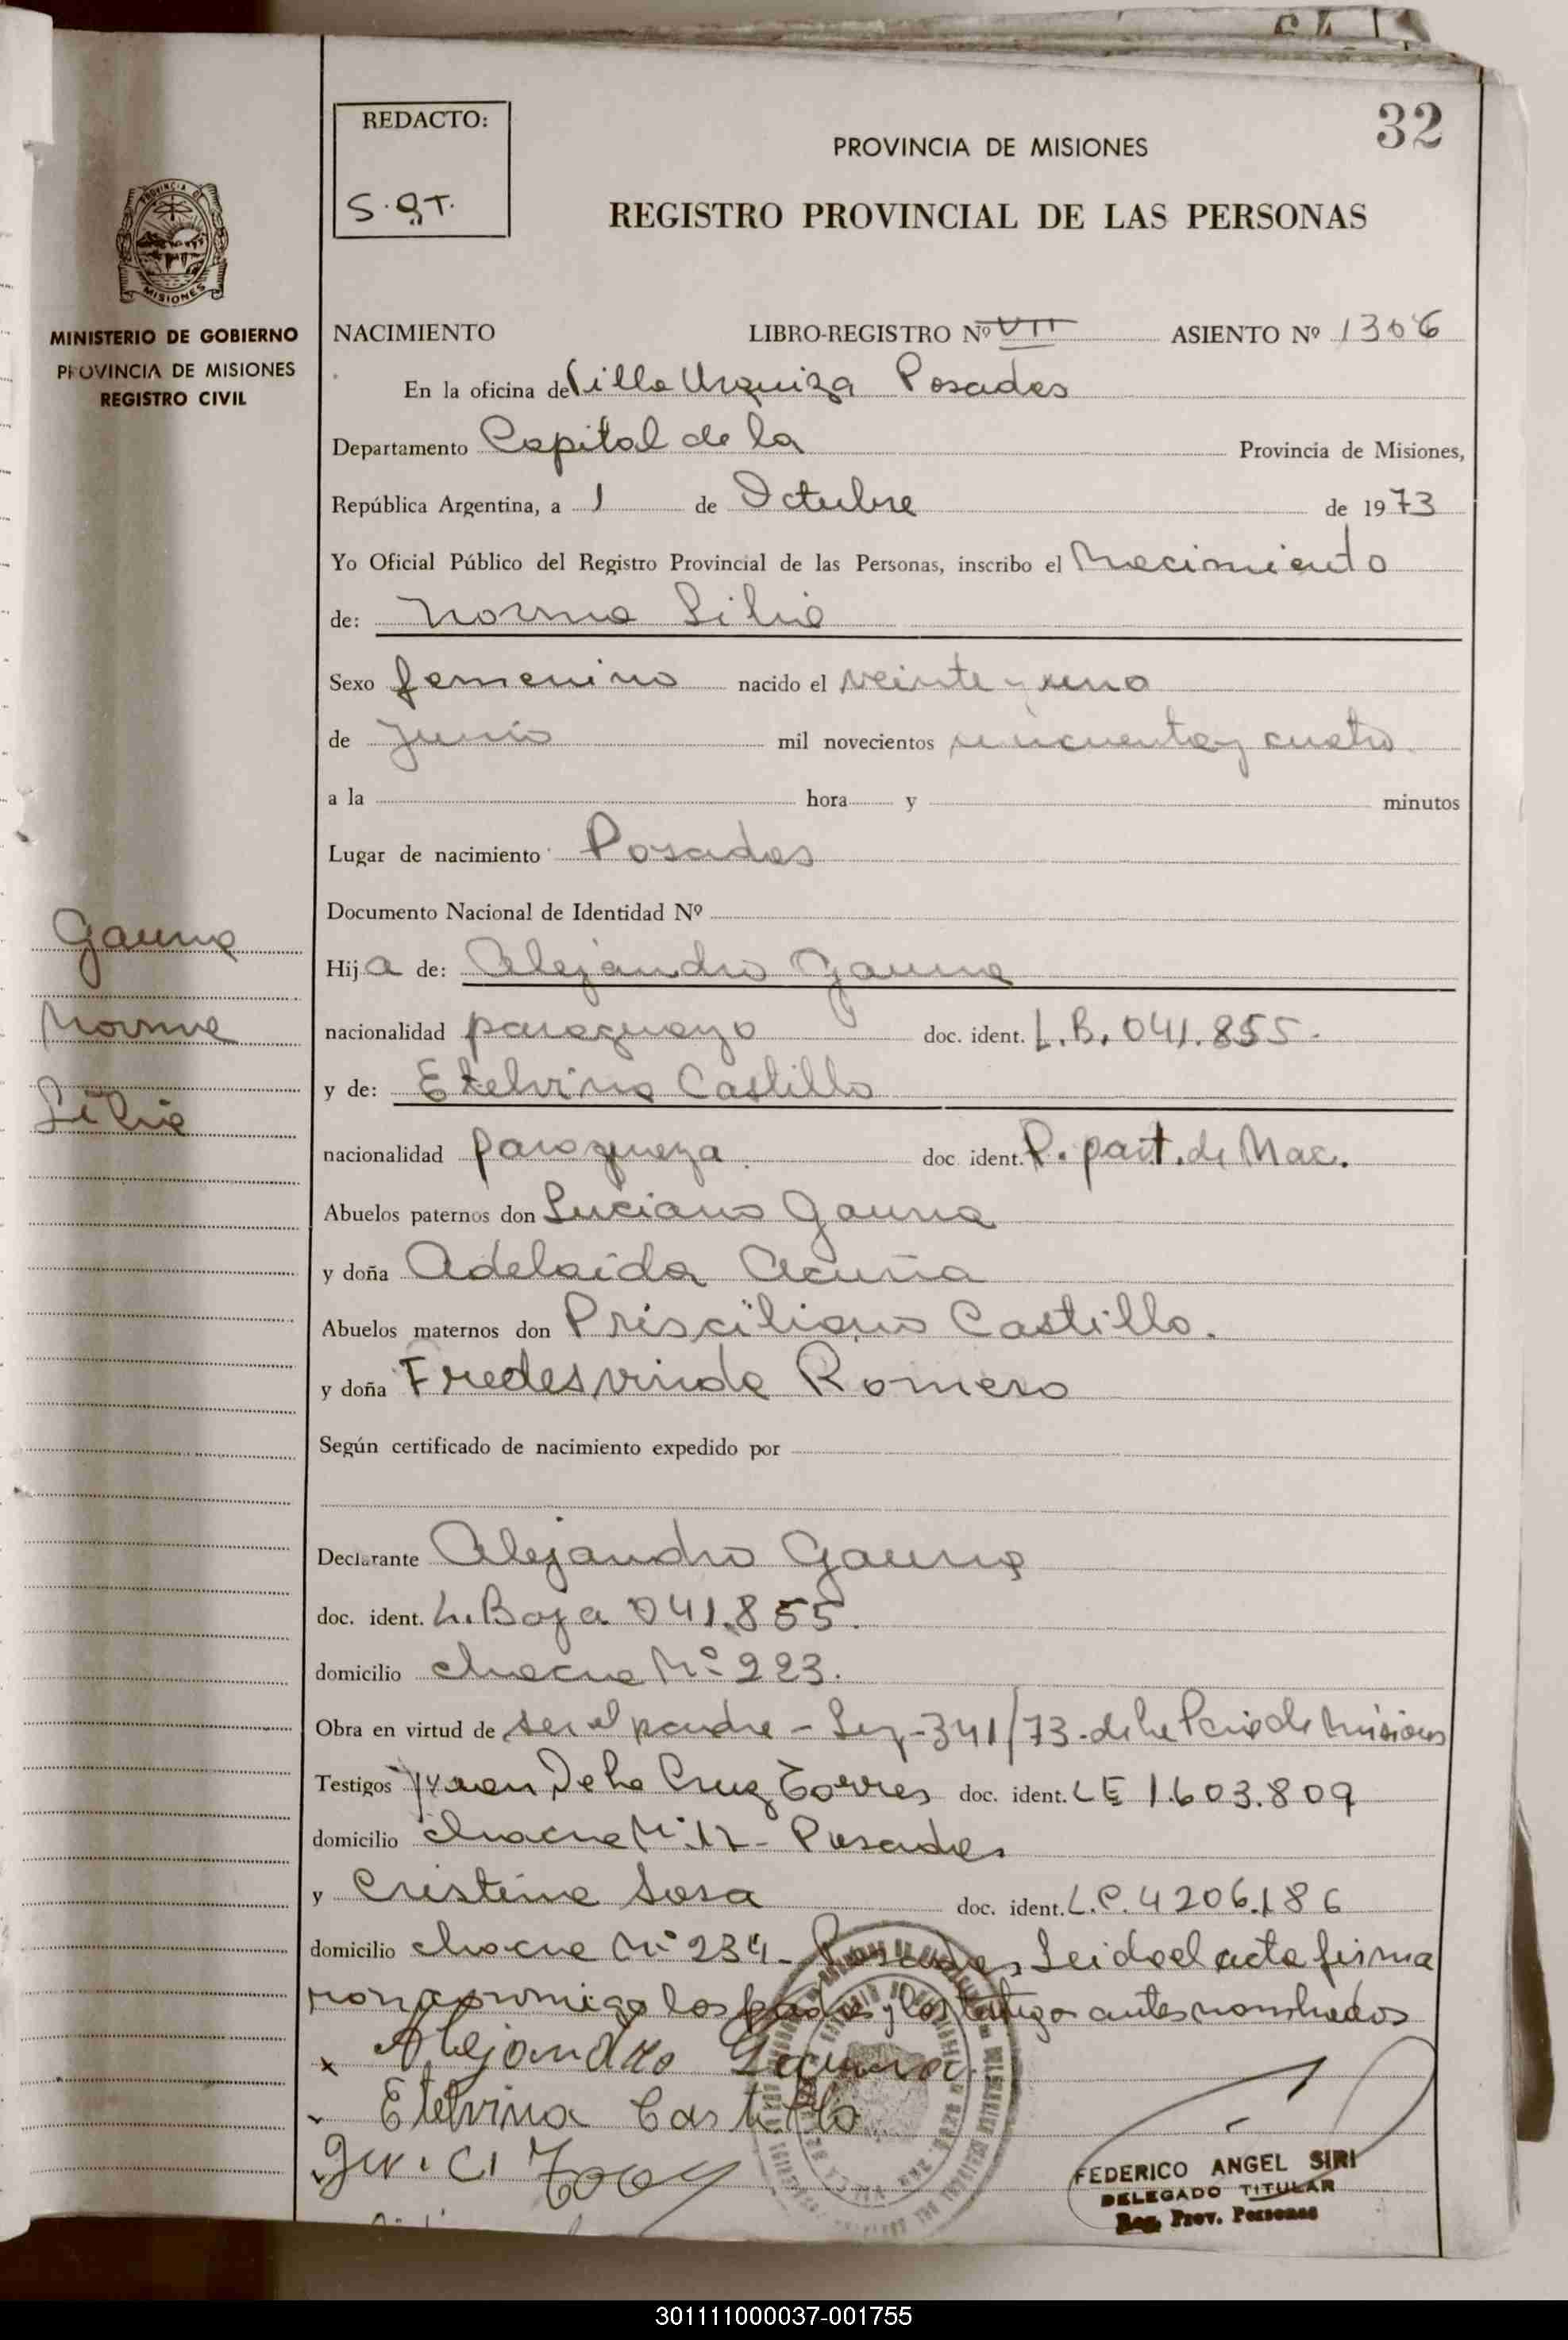 32
REDACTO:
S.g.T.
PROVINCIA DE MISIONES
REGISTRO PROVINCIAL DE LAS PERSONAS
MISIONES
MINISTERIO DE GOBIERNO
PROVINCIA DE MISIONES
REGISTRO CIVIL
NACIMIENTO LIBRO-REGISTRO Nº VII ASIENTO Nº 1306
En la oficina de Villa Urquiza Posadas
Departamento Capital de la Provincia de Misiones,
República Argentina, a 1 de Octubre de 1973
Yo Oficial Público del Registro Provincial de las Personas, inscribo el Nacimiento
de: Norma Lilia
Sexo femenino nacido el veinte y uno
de Junio mil novecientos cincuenta y cuatro
a la hora y minutos
Lugar de nacimiento Posadas
Documento Nacional de Identidad Nº
Gauna
Norma
Lilia
Hija de: Alejandro Gauna
nacionalidad paraguayo doc. ident. L.B. 041.855.
y de: Etelvina Castillo
nacionalidad paraguaya. doc. ident. P. part. de Nac.
Abuelos paternos don Luciano Gauna
y doña Adelaida Acuña
Abuelos maternos don Prisciliano Castillo.
y doña Fredesvinda Romero
Según certificado de nacimiento expedido por
Declarante Alejandro Gauna
doc. ident. L. Baja 041.855.
domicilio chacra Nº 223.
Obra en virtud de ser el padre - Ley-341/73-de la Pcia de Misiones
Testigos Juan De la Cruz Torres doc. ident. LE 1.603.809
domicilio chacra Nº 17- Posadas
y Cristina Sosa doc. ident. L.C. 4206.186
domicilio chacra Nº 234- Posadas, Leido el acta firma
ron conmigo los padres y los testigos antes nombrados
x Alejandro Gauna
Etelvina Castillo
FEDERICO ANGEL SIRI
DELEGADO TITULAR
Reg. Prov. Personas
301111000037-001755